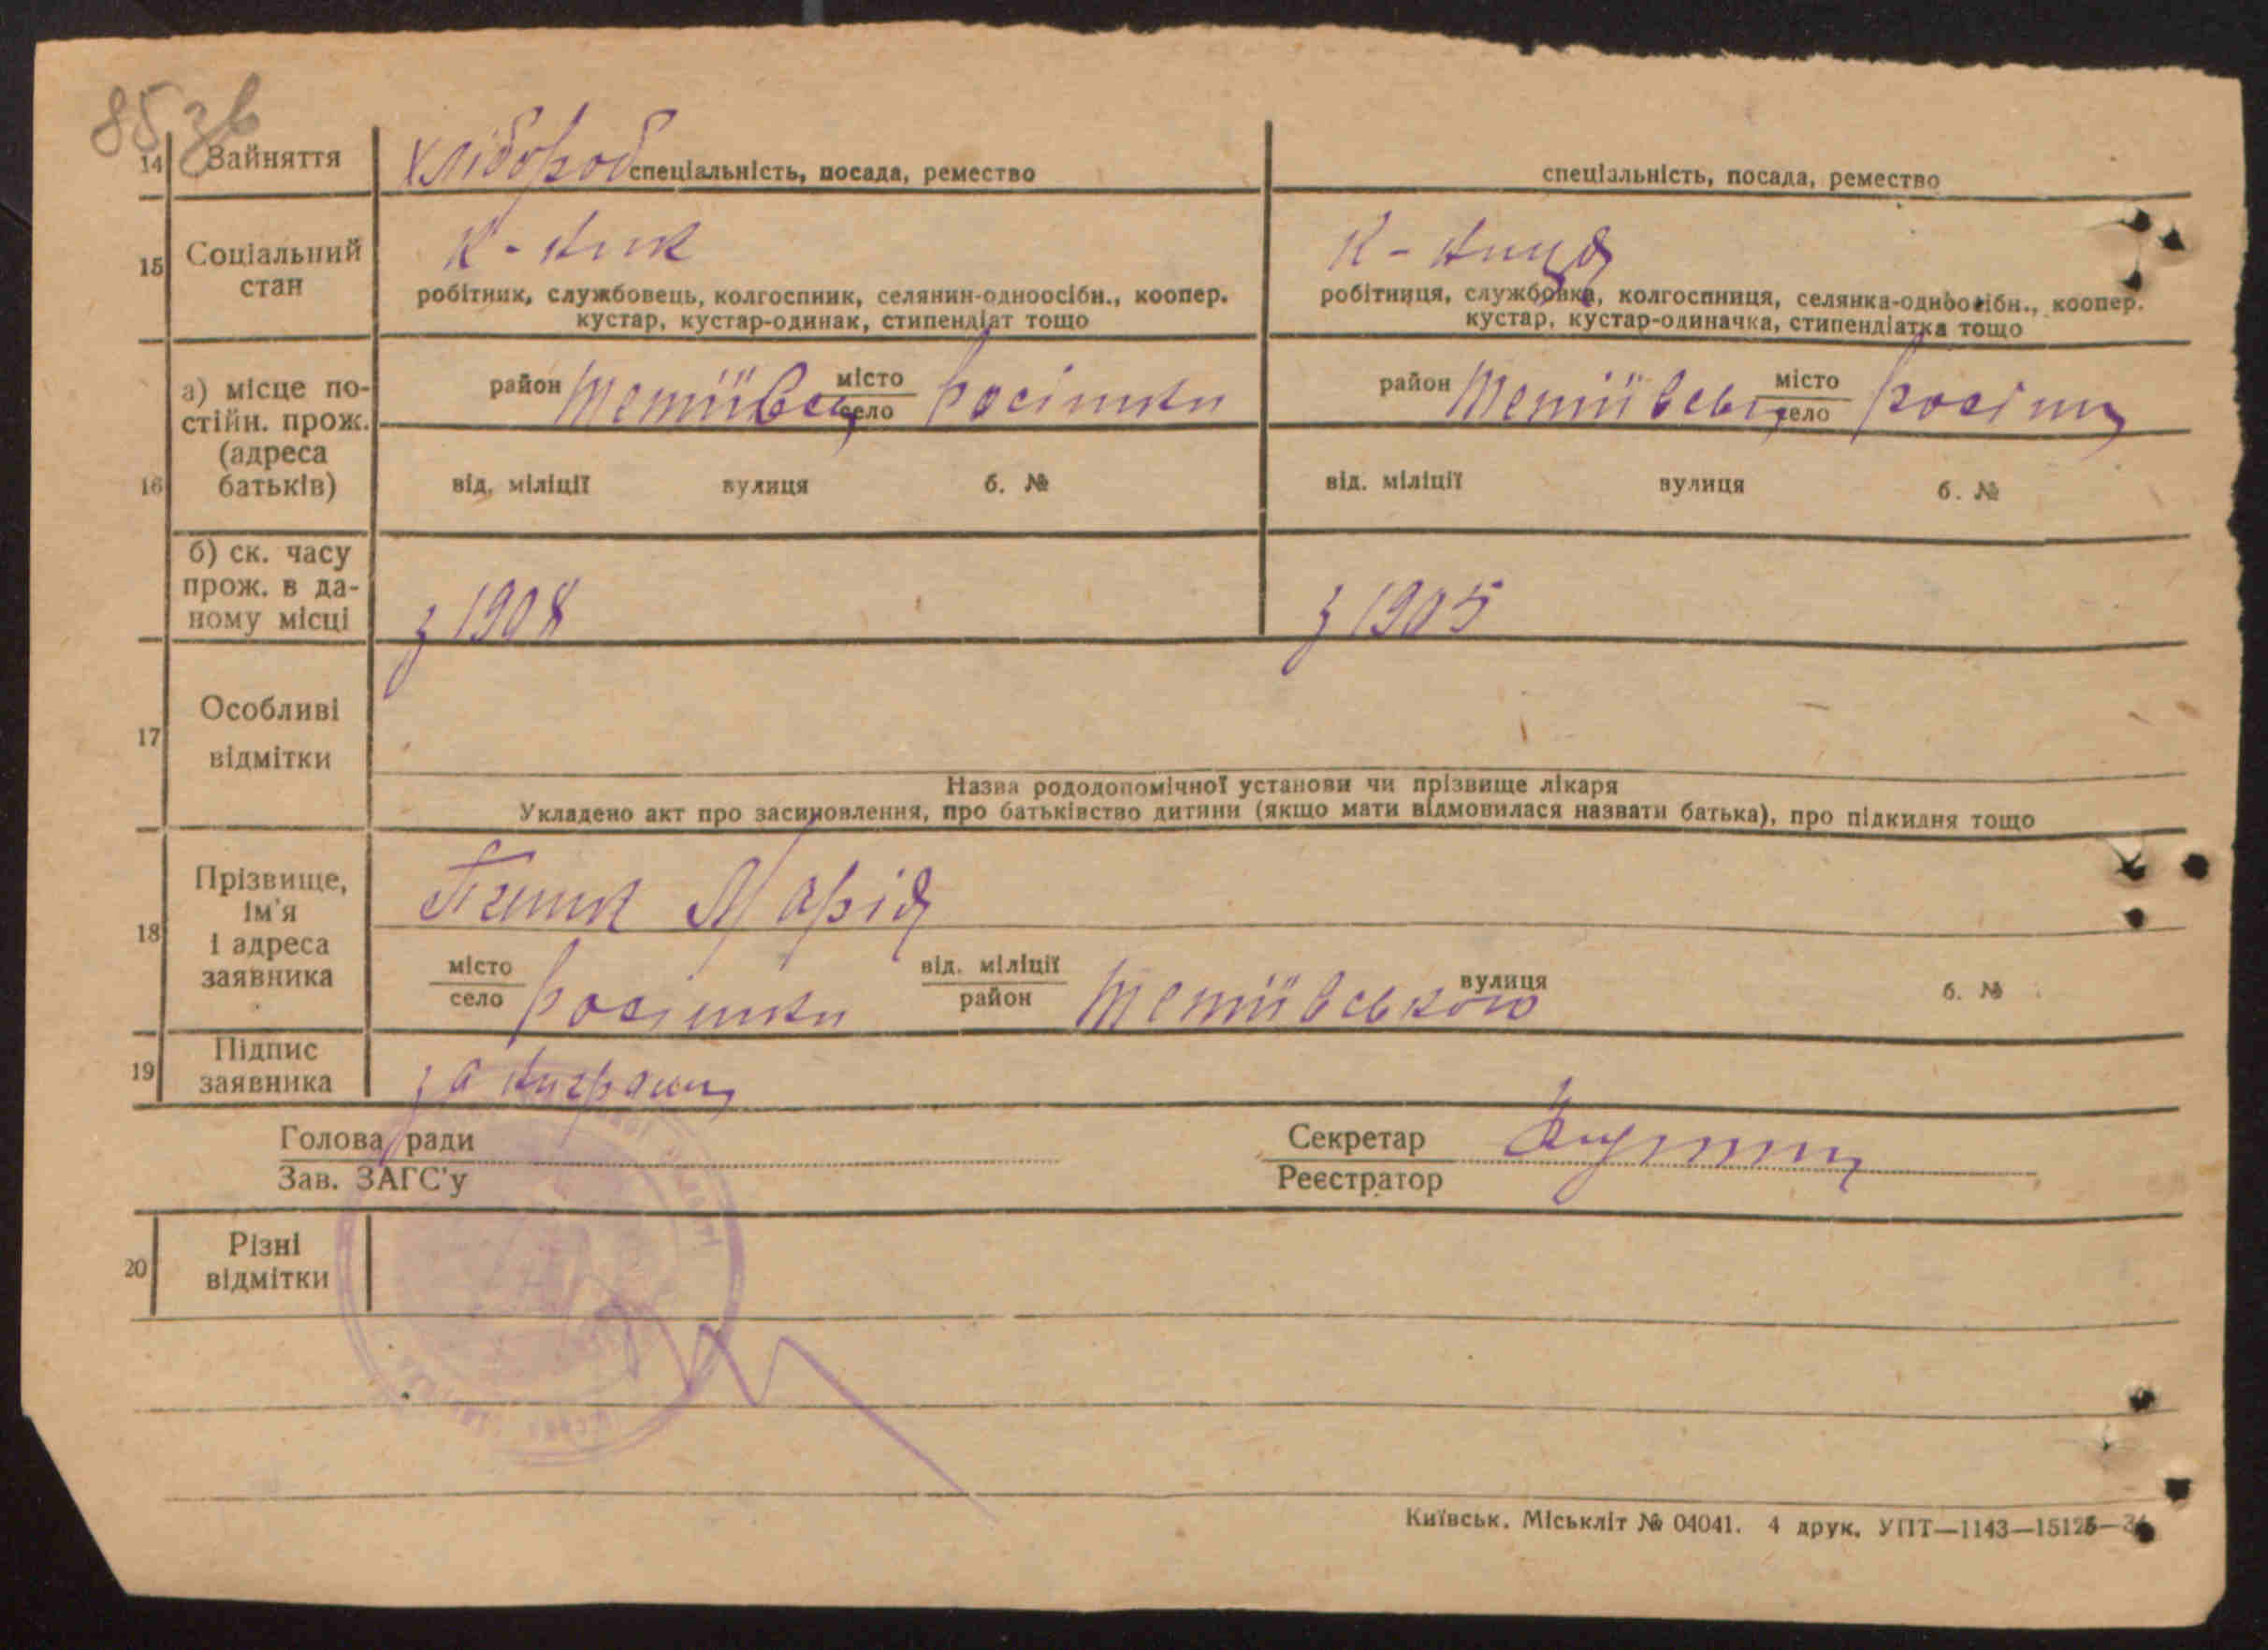 85 зв
14 Зайняття Хлібороб спеціальність, посада, ремество спеціальність, посада, ремество
15 Соціальний стан К-ник К-ниця
робітник, службовець, колгоспник, селянин-одноосібн., коопер. робітниця, службовка, колгоспниця, селянка-одноосібн., коопер.
кустар, кустар-одинак, стипендіат тощо кустар, кустар-одиначка, стипендіатка тощо
16 а) місце постійн. прож. (адреса батьків) район місто село Росішки район місто село
від. міліції вулиця б. № від. міліції вулиця б. №
б) ск. часу прож. в даному місці з 1908 з 1905
17 Особливі відмітки
Назва рододопомічної установи чи прізвище лікаря
Укладено акт про засиновлення, про батьківство дитини (якщо мати відмовилася назвати батька), про підкидня тощо
18 Прізвище, ім'я і адреса заявника Марія
місто село Росішки від. міліції район Тетіївського вулиця б. №
19 Підпис заявника за
Голова ради Секретар
Зав. ЗАГС'у Реєстратор
20 Різні відмітки
Київськ. Міськліт № 04041. 4 друк. УПТ—1143—15125—34